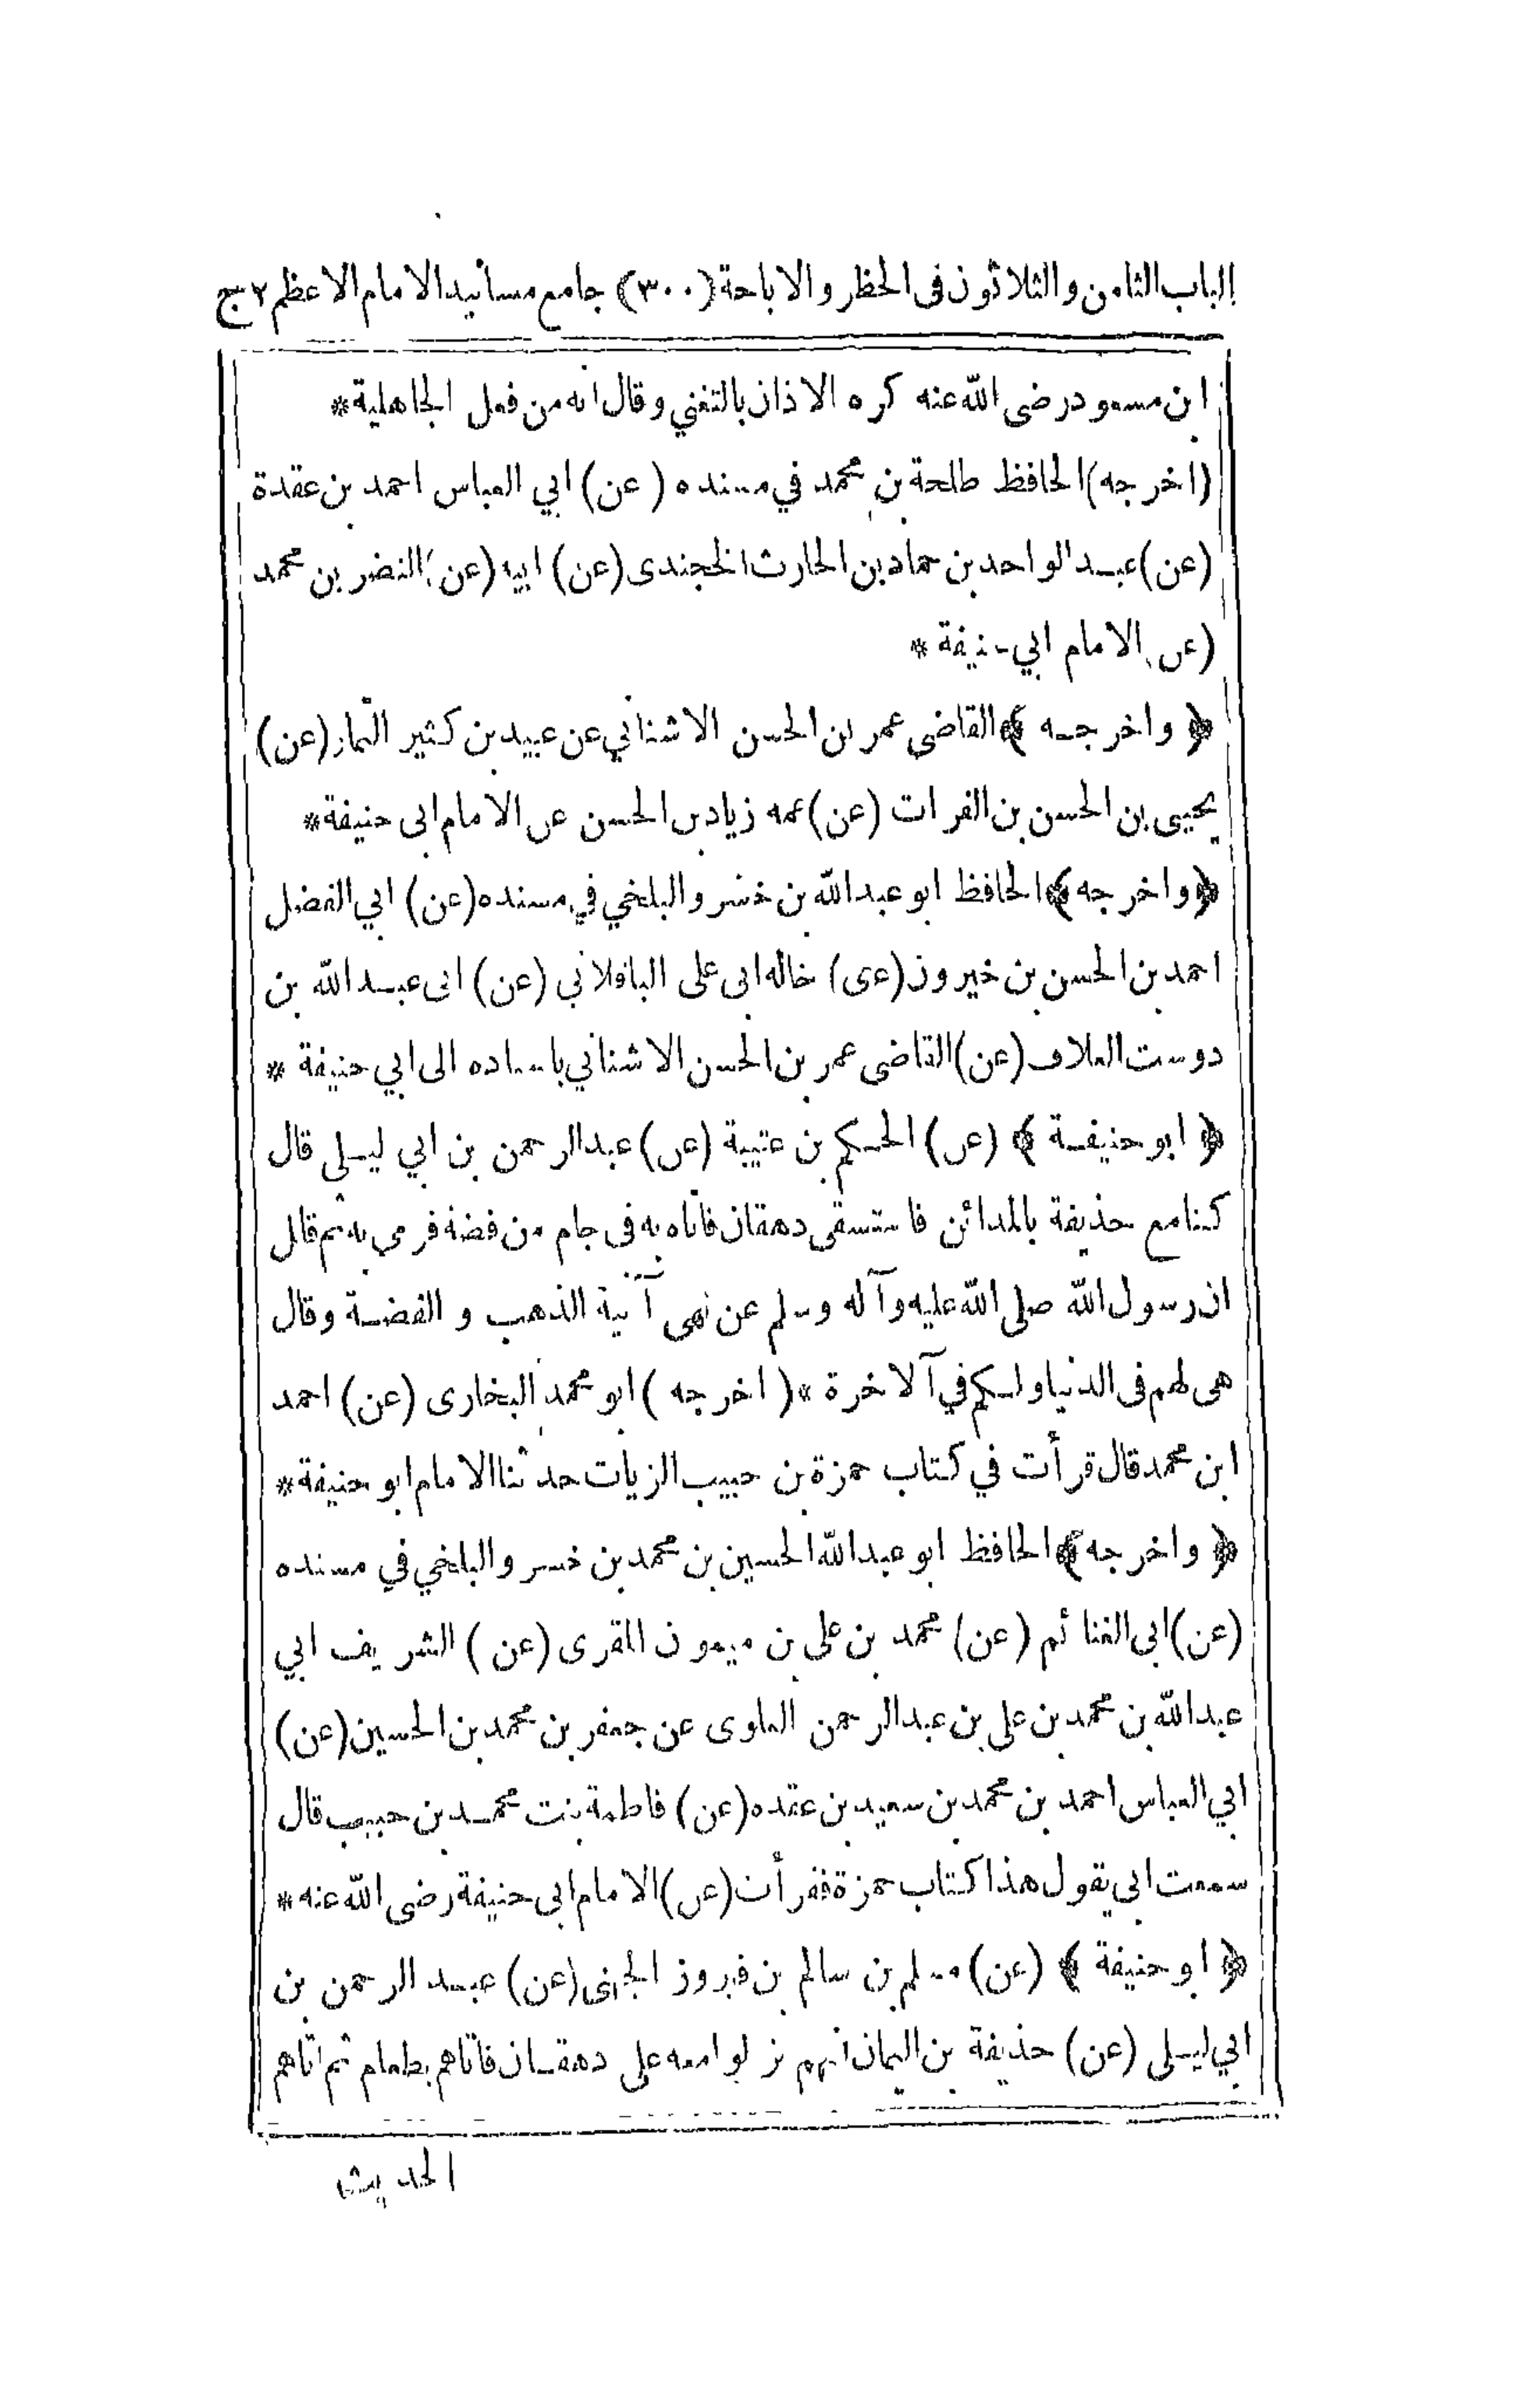 الباب الثامن والثلاثون فى الحظر والاباحة (٣٠٠) جامع مسانيد الامام الاعظم ج٢
ابن مسعود رضى الله عنه كره الاذان بالتغني وقال انه من فعل الجاهلية *
(اخرجه) الحافظ طلحة بن محمد في مسنده (عن) ابي العباس احمد بن عقدة
(عن) عبد الواحد بن حماد بن الحارث الخجندى (عن) ابيه (عن) النضر بن محمد
(عن) الامام ابي حنيفة *
﴿ واخرجه ﴾ القاضى عمر بن الحسن الاشناني عن عبيد بن كثير التمار (عن)
يحيى بن الحسن بن الفرات (عن) عمه زياد بن الحسن عن الامام ابى حنيفة *
﴿ واخرجه ﴾ الحافظ ابو عبد الله بن خسرو البلخي في مسنده (عن) ابي الفضل
احمد بن الحسن بن خيرون (عن) خاله ابى على الباقلاني (عن) ابى عبد الله بن
دوست العلاف (عن) القاضى عمر بن الحسن الاشناني باسناده الى ابي حنيفة *
﴿ ابو حنيفة ﴾ (عن) الحكم بن عتيبة (عن) عبد الرحمن بن ابي ليلى قال
كنا مع حذيفة بالمدائن فاستسقى دهقان فاتاه به فى جام من فضة فرمى به ثم قال
ان رسول الله صلى الله عليه وآله وسلم عن نهى آنية الذهب و الفضة وقال
هى لهم فى الدنيا ولكم في آلاخرة * (اخرجه) ابو محمد البخارى (عن) احمد
ابن محمد قال قرأت في كتاب حمزة بن حبيب الزيات حدثنا الامام ابو حنيفة *
﴿ واخرجه ﴾ الحافظ ابو عبد الله الحسين بن محمد بن خسرو البلخي في مسنده
(عن) ابى الغنائم (عن) محمد بن على بن ميمون المقرى (عن) الشريف ابي
عبد الله بن محمد بن على بن عبد الرحمن العلوى عن جعفر بن محمد بن الحسين (عن)
ابي العباس احمد بن محمد بن سعيد بن عقده (عن) فاطمة بنت محمد بن حبيب قال
سمعت ابي يقول هذا كتاب حمزة فقرأت (عن) الامام ابى حنيفة رضى الله عنه *
﴿ ابو حنيفة ﴾ (عن) مسلم بن سالم بن فيروز الجهنى (عن) عبد الرحمن بن
ابي ليلى (عن) حذيفة بن اليمان انهم نزلوا معه على دهقان فاتاهم بطعام ثم اتاهم
الحديث